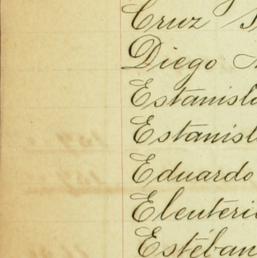 Cruz
Diego
Estanisl
Estanisl
Eduardo
Eleuteri
Estéban